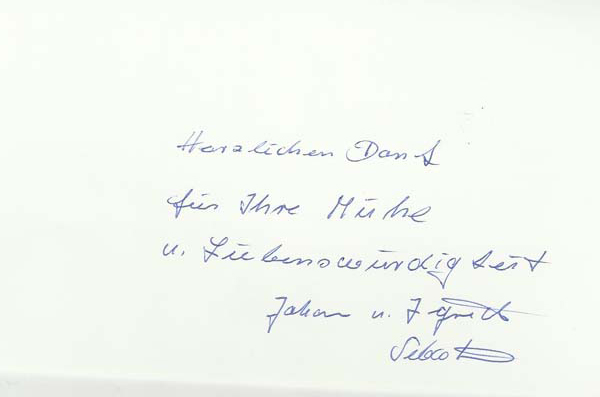 Herzlichen Dank
für Ihre Mühe
u. Liebenswürdigkeit
Johann u.